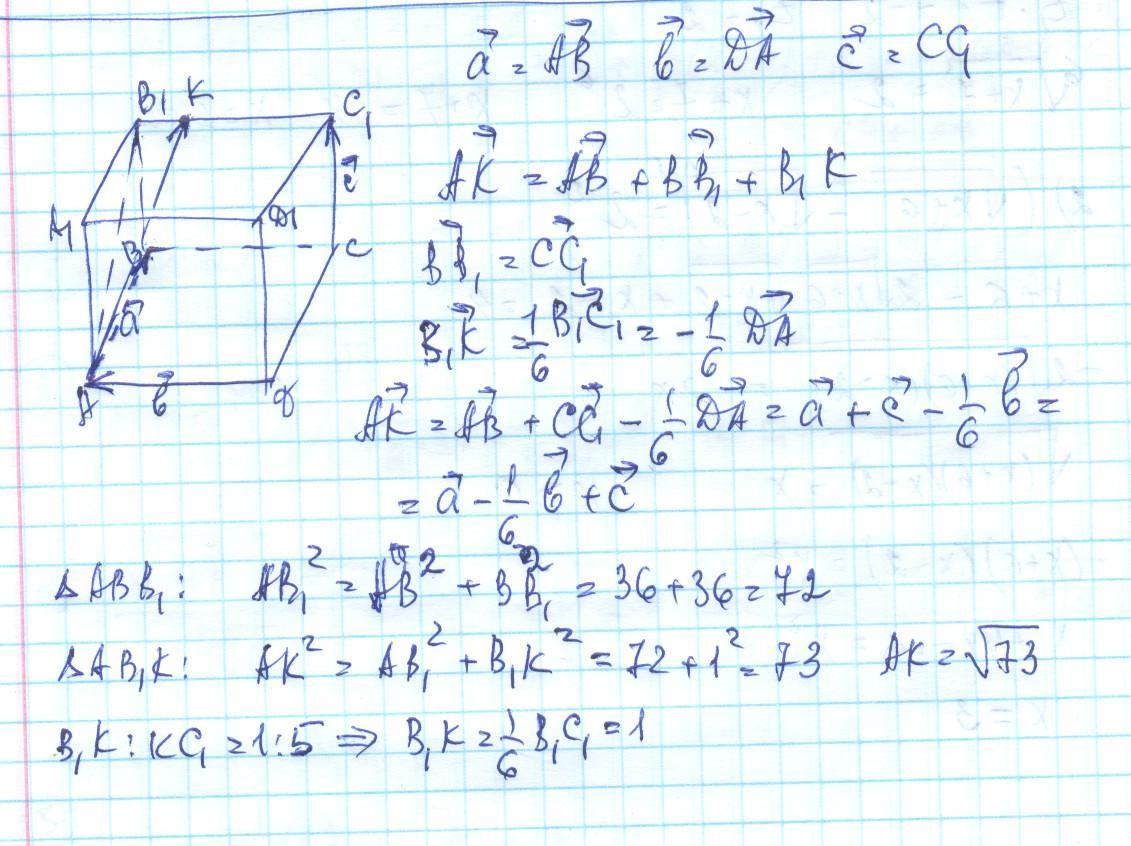 a⃗ = AB⃗   b⃗ = DA⃗   c⃗ = CC₁
B₁ K C₁
AK⃗ = AB⃗ + BB₁⃗ + B₁K
c⃗
A₁ D₁
B C
BB₁⃗ = CC₁⃗
a⃗
B₁K⃗ = 1/6 B₁C₁⃗ = -1/6 DA⃗
A b⃗ D
AK⃗ = AB⃗ + CC₁⃗ - 1/6 DA⃗ = a⃗ + c⃗ - 1/6 b⃗ =
= a⃗ - 1/6 b⃗ + c⃗
ΔABB₁: AB₁² = AB² + BB₁² = 36+36=72
ΔAB₁K: AK² = AB₁² + B₁K² = 72+1² = 73   AK=√73
B₁K : KC₁ = 1:5 ⇒ B₁K = 1/6 B₁C₁ = 1